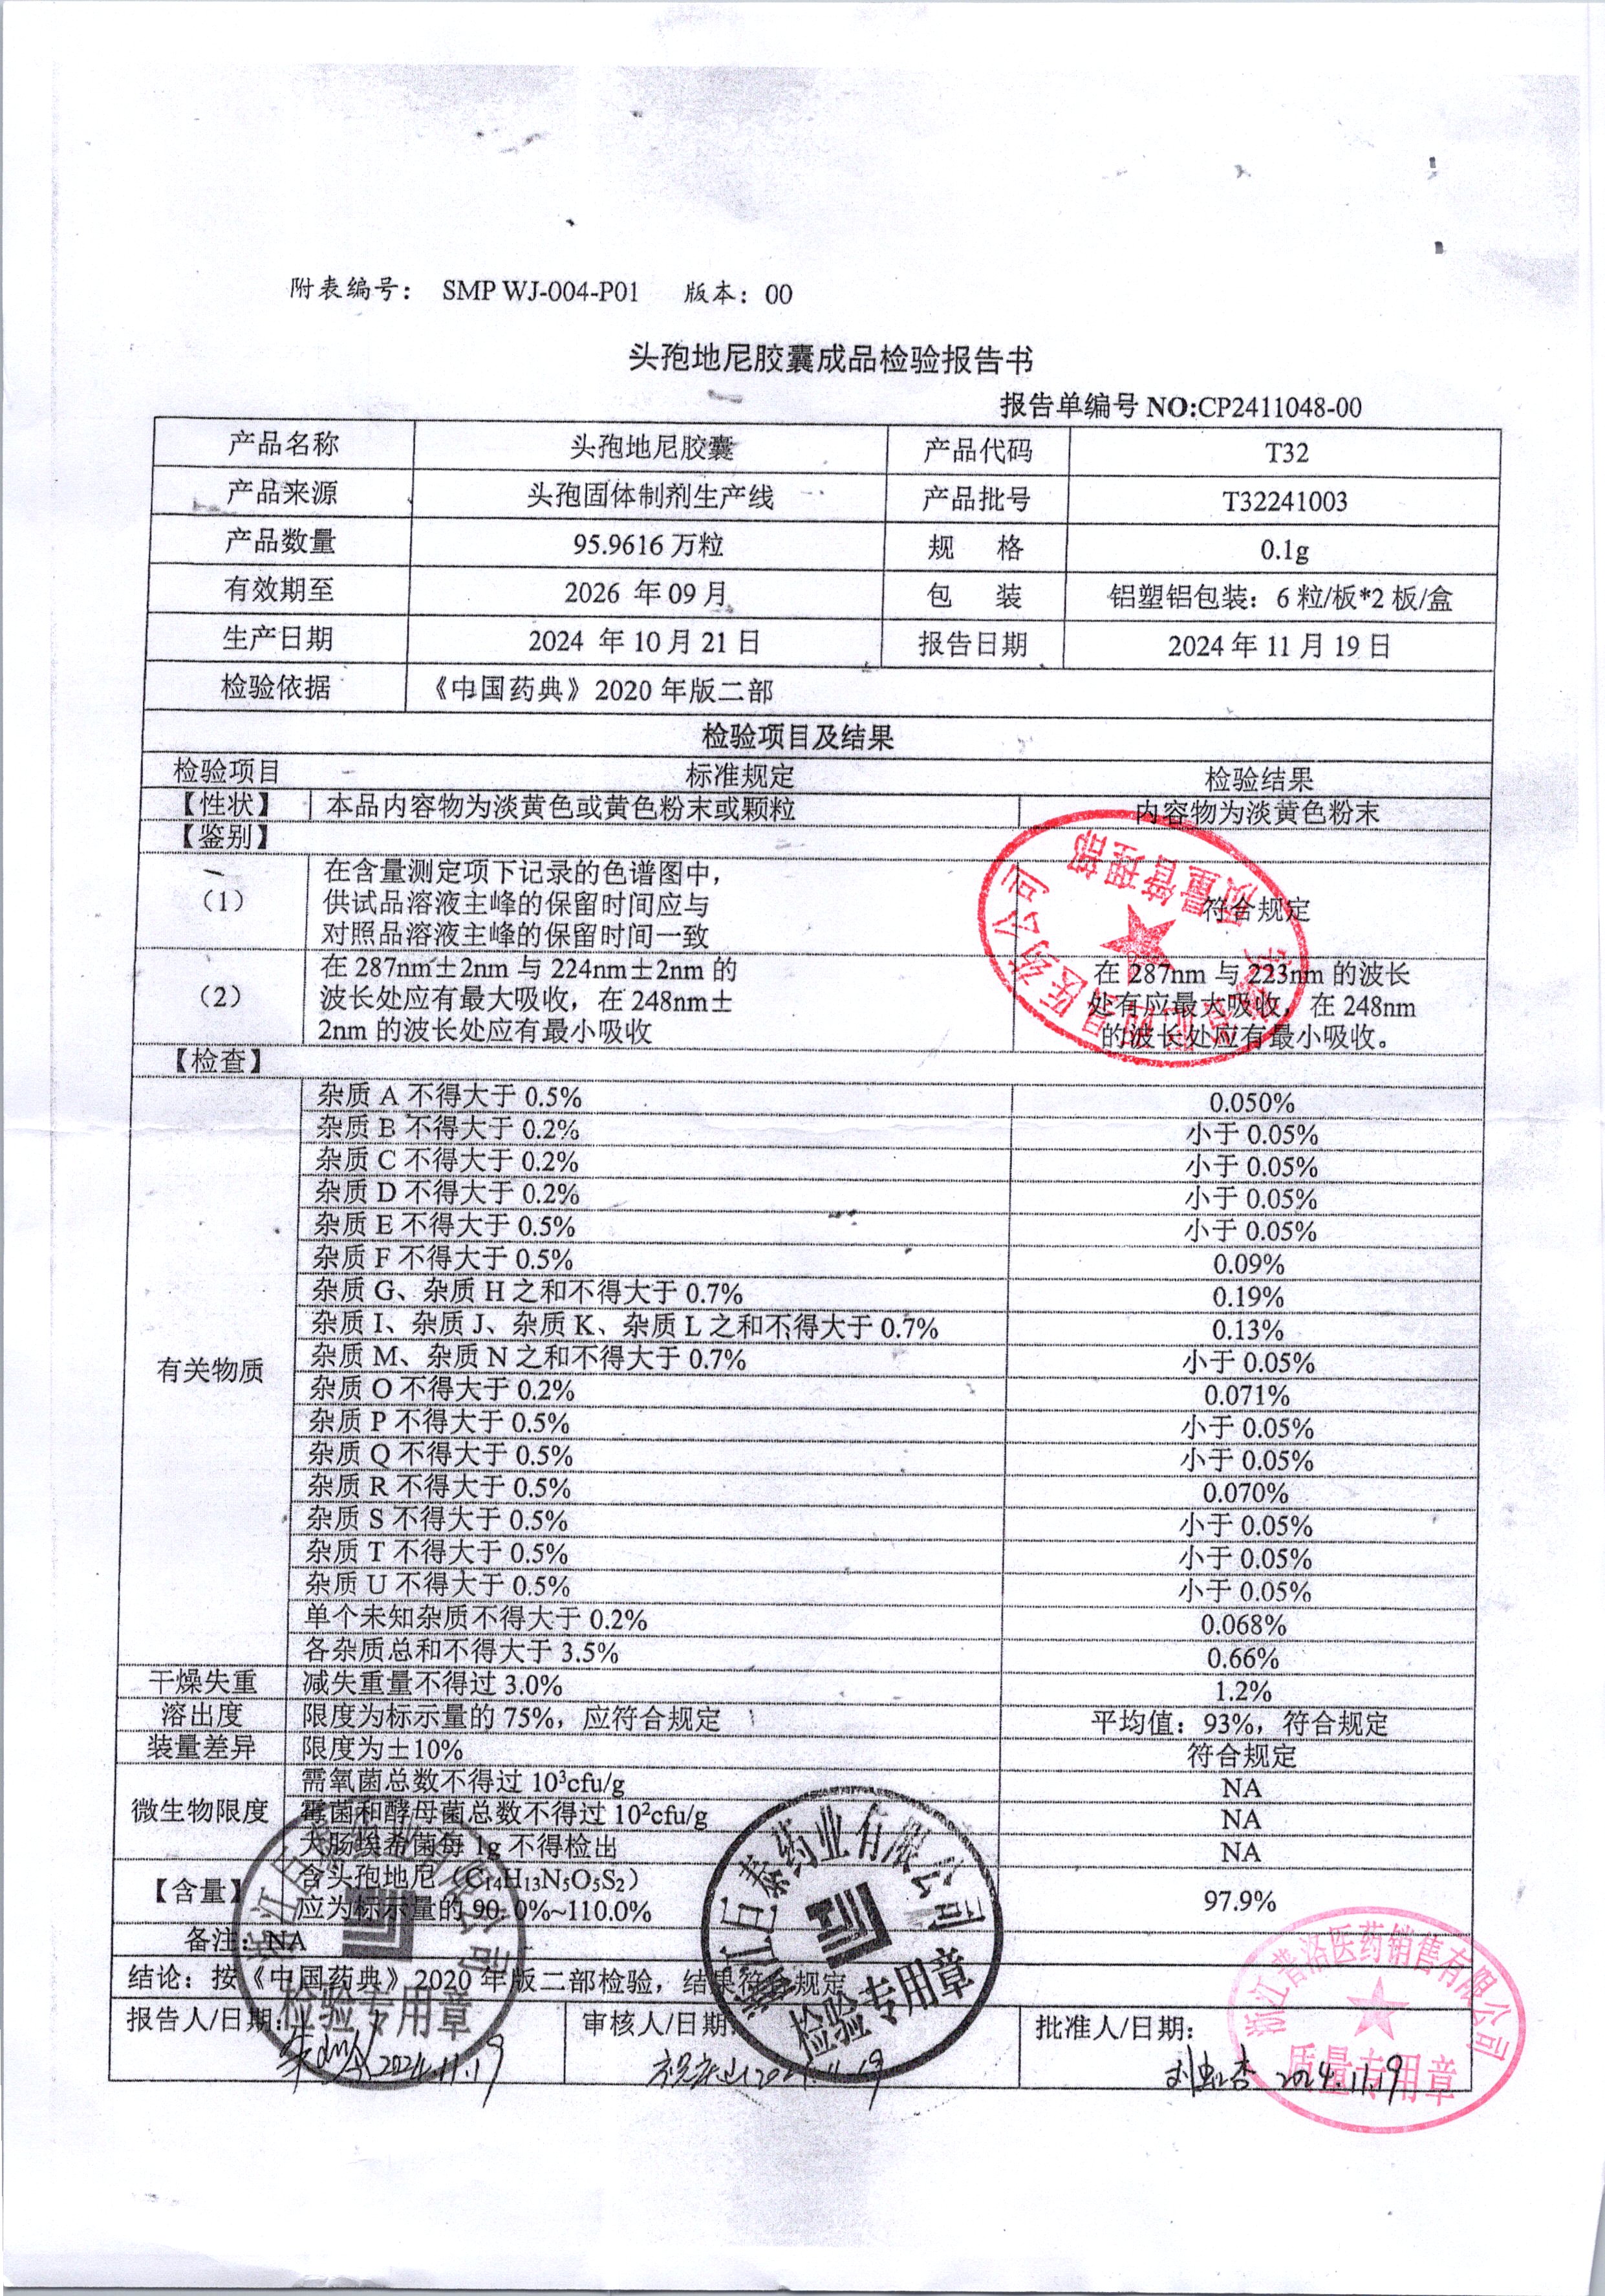 附表编号： SMP WJ-004-P01 版本：00
头孢地尼胶囊成品检验报告书
报告单编号 NO:CP2411048-00
产品名称 头孢地尼胶囊 产品代码 T32
产品来源 头孢固体制剂生产线 产品批号 T32241003
产品数量 95.9616 万粒 规 格 0.1g
有效期至 2026 年 09 月 包 装 铝塑铝包装：6 粒/板*2 板/盒
生产日期 2024 年 10 月 21 日 报告日期 2024 年 11 月 19 日
检验依据 《中国药典》2020 年版二部
检验项目及结果
检验项目 标准规定 检验结果
【性状】 本品内容物为淡黄色或黄色粉末或颗粒 内容物为淡黄色粉末
【鉴别】
（1） 在含量测定项下记录的色谱图中，
供试品溶液主峰的保留时间应与
对照品溶液主峰的保留时间一致
符合规定
（2） 在 287nm±2nm 与 224nm±2nm 的
波长处应有最大吸收，在 248nm±
2nm 的波长处应有最小吸收
在 287nm 与 223nm 的波长
处有应最大吸收，在 248nm
的波长处应有最小吸收。
【检查】
有关物质
杂质 A 不得大于 0.5% 0.050%
杂质 B 不得大于 0.2% 小于 0.05%
杂质 C 不得大于 0.2% 小于 0.05%
杂质 D 不得大于 0.2% 小于 0.05%
杂质 E 不得大于 0.5% 小于 0.05%
杂质 F 不得大于 0.5% 0.09%
杂质 G、杂质 H 之和不得大于 0.7% 0.19%
杂质 I、杂质 J、杂质 K、杂质 L 之和不得大于 0.7% 0.13%
杂质 M、杂质 N 之和不得大于 0.7% 小于 0.05%
杂质 O 不得大于 0.2% 0.071%
杂质 P 不得大于 0.5% 小于 0.05%
杂质 Q 不得大于 0.5% 小于 0.05%
杂质 R 不得大于 0.5% 0.070%
杂质 S 不得大于 0.5% 小于 0.05%
杂质 T 不得大于 0.5% 小于 0.05%
杂质 U 不得大于 0.5% 小于 0.05%
单个未知杂质不得大于 0.2% 0.068%
各杂质总和不得大于 3.5% 0.66%
干燥失重 减失重量不得过 3.0% 1.2%
溶出度 限度为标示量的 75%，应符合规定 平均值：93%，符合规定
装量差异 限度为±10% 符合规定
微生物限度
需氧菌总数不得过 10³cfu/g NA
霉菌和酵母菌总数不得过 10²cfu/g NA
大肠埃希菌每 1g 不得检出 NA
【含量】 含头孢地尼（C₁₄H₁₃N₅O₅S₂）
应为标示量的 90.0%~110.0% 97.9%
备注：NA
结论：按《中国药典》2020 年版二部检验，结果符合规定
报告人/日期： 2024.11.19
审核人/日期： 2024.11.19
批准人/日期： 2024.11.19
医药公司
质量管理部
药业有限公司
检验专用章
药业有限公司
检验专用章
浙江普洛医药销售有限公司
质量专用章